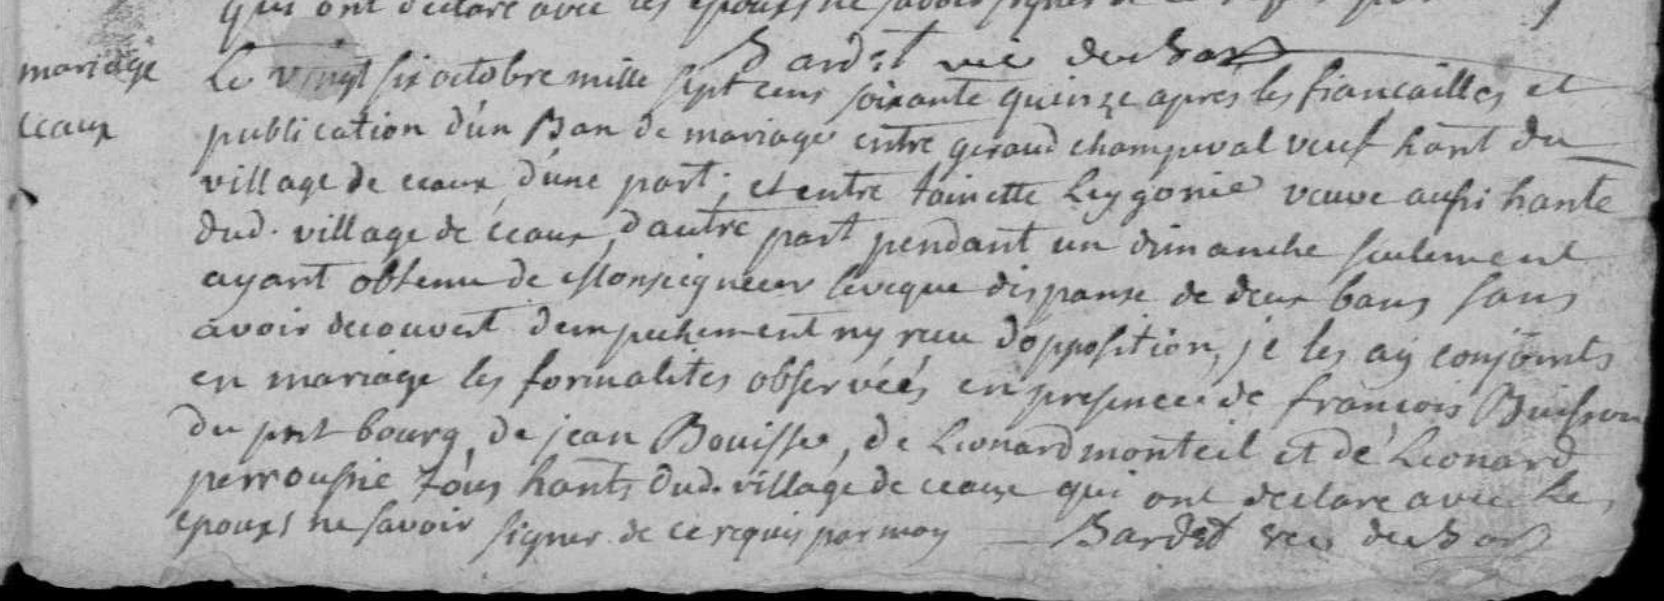 qui ont declaré avec les epoux ne savoir signer de ce
Bardet vic
mariage
ceaux
Le vingt six octobre mille sept cens soixante quinze apres les fiancailles et
publication d'un Ban de mariage entre geraud champeval veuf hant du
village de ceaux d'une part; et entre toinette Leygonie veuve aussi hante
dud. village de ceaux, d'autre part pendant un dimanche seulement
ayant obtenu de Monseigneur leveque dispanse de deux bans sans
avoir decouvert d'empechement ny reçu d'opposition, je les ay conjoints
en mariage les formalités observéés en presence de françois Buisson
du pnt bourg, de jean Bouisse, de Leonard monteil et de Leonard
perroussie tous hants dud. village de ceaux qui ont declare avec les
epouxs ne savoir signer de ce requis par moy Bardet